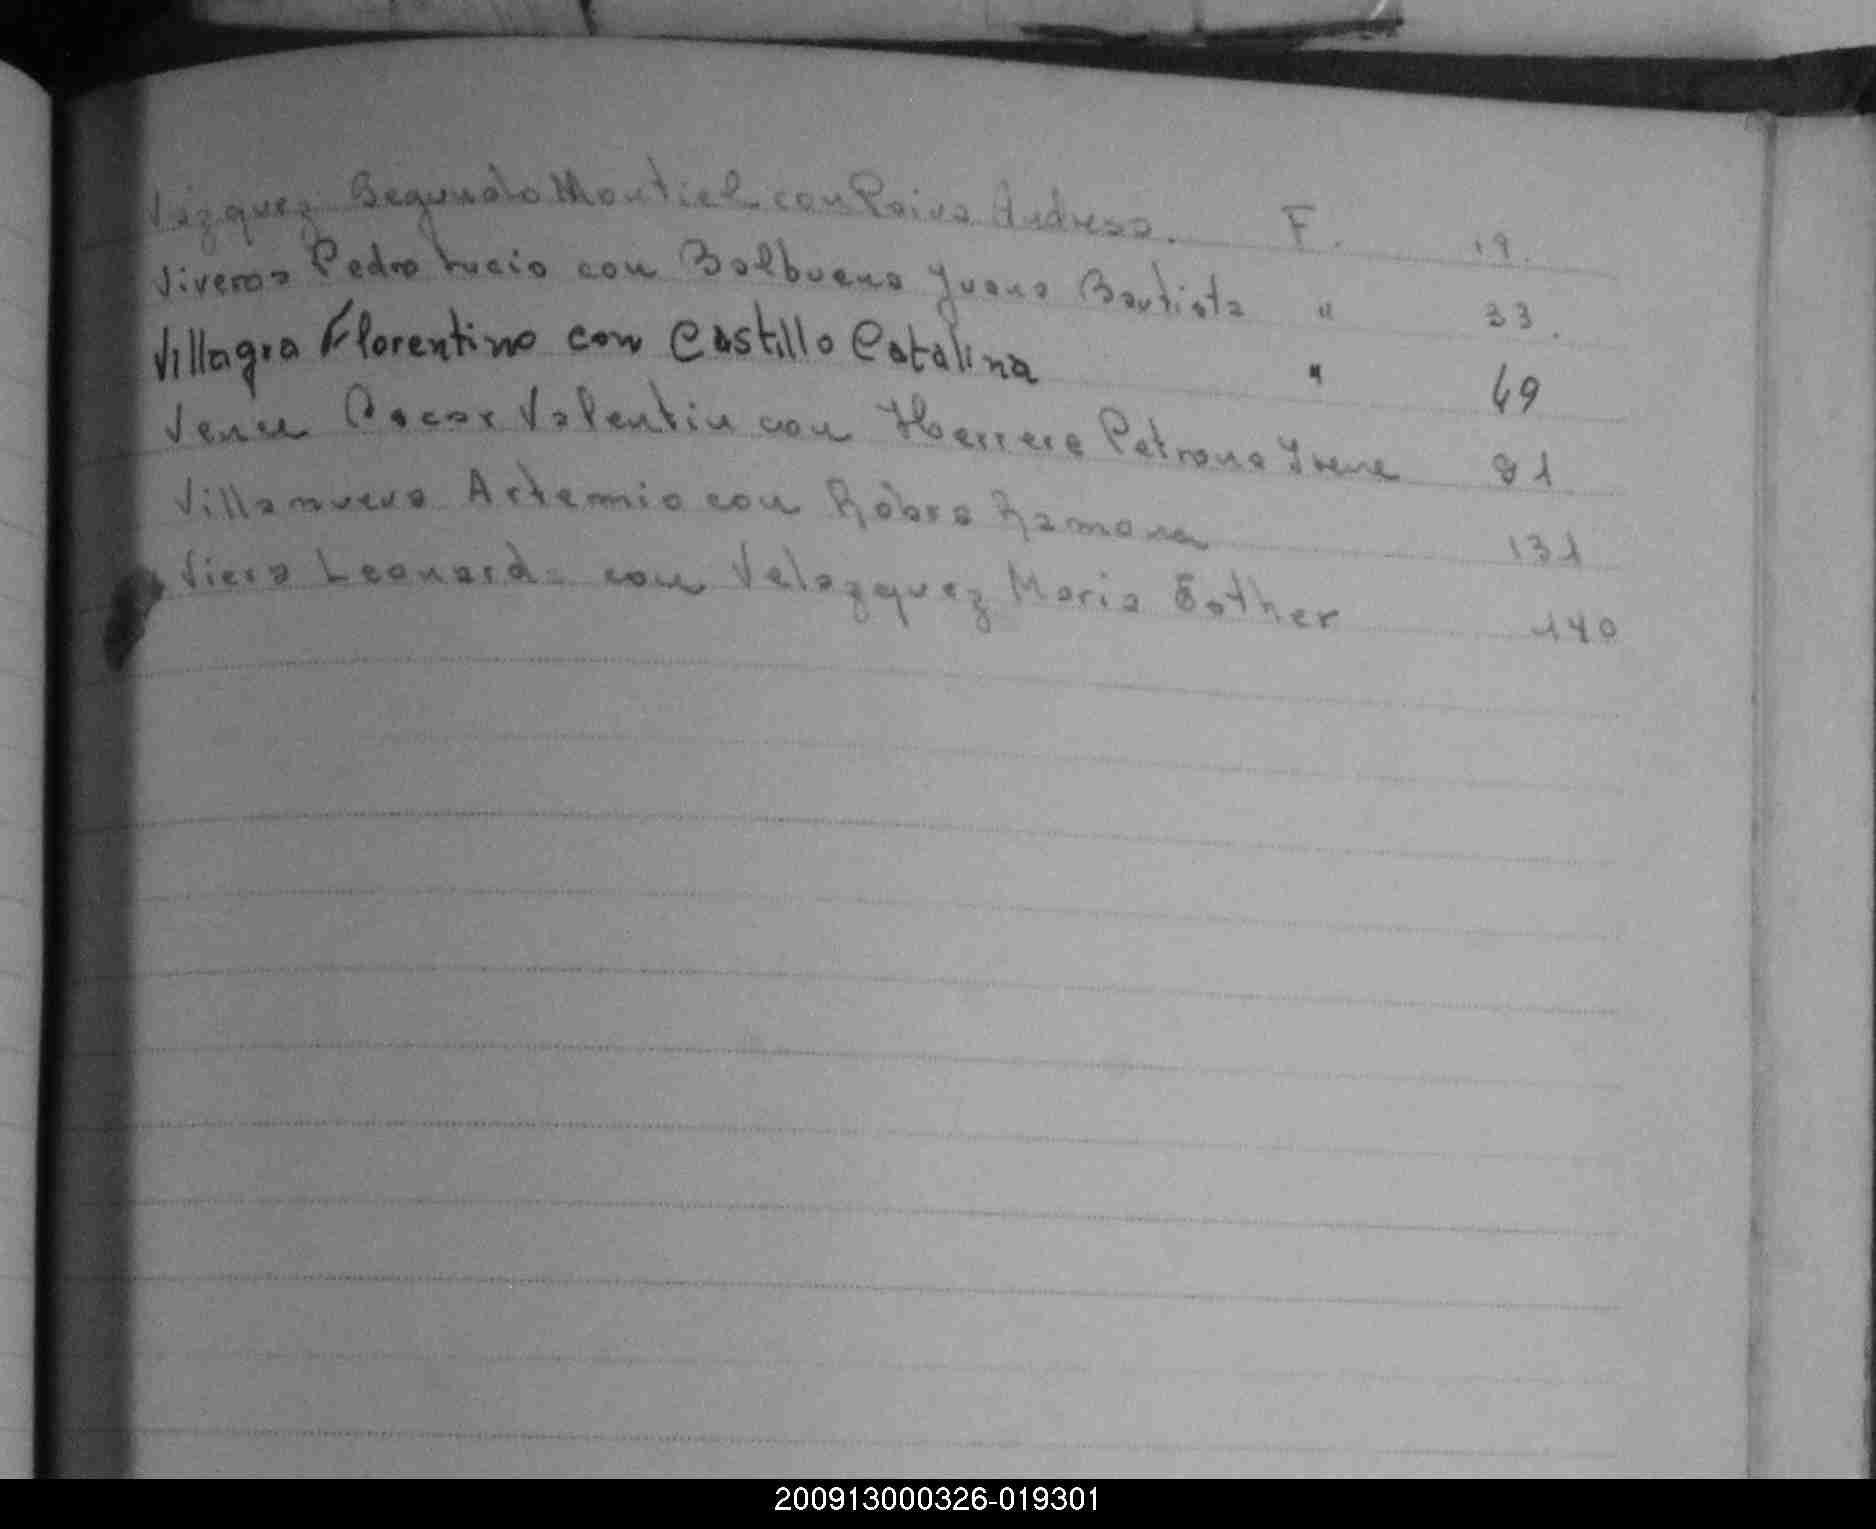 Vázquez Segundo Montiel con Paiva Andresa. F. 19.
Viveros Pedro Lucio con Balbuena Juana Bautista " 33.
Villagra Florentino con Castillo Catalina " 69
Oscar Valentin con Herrera Petrona Irene 81
Villanueva Artemio con Ramona 131
Viera Leonardo con Velazquez Maria Esther 140
200913000326-019301